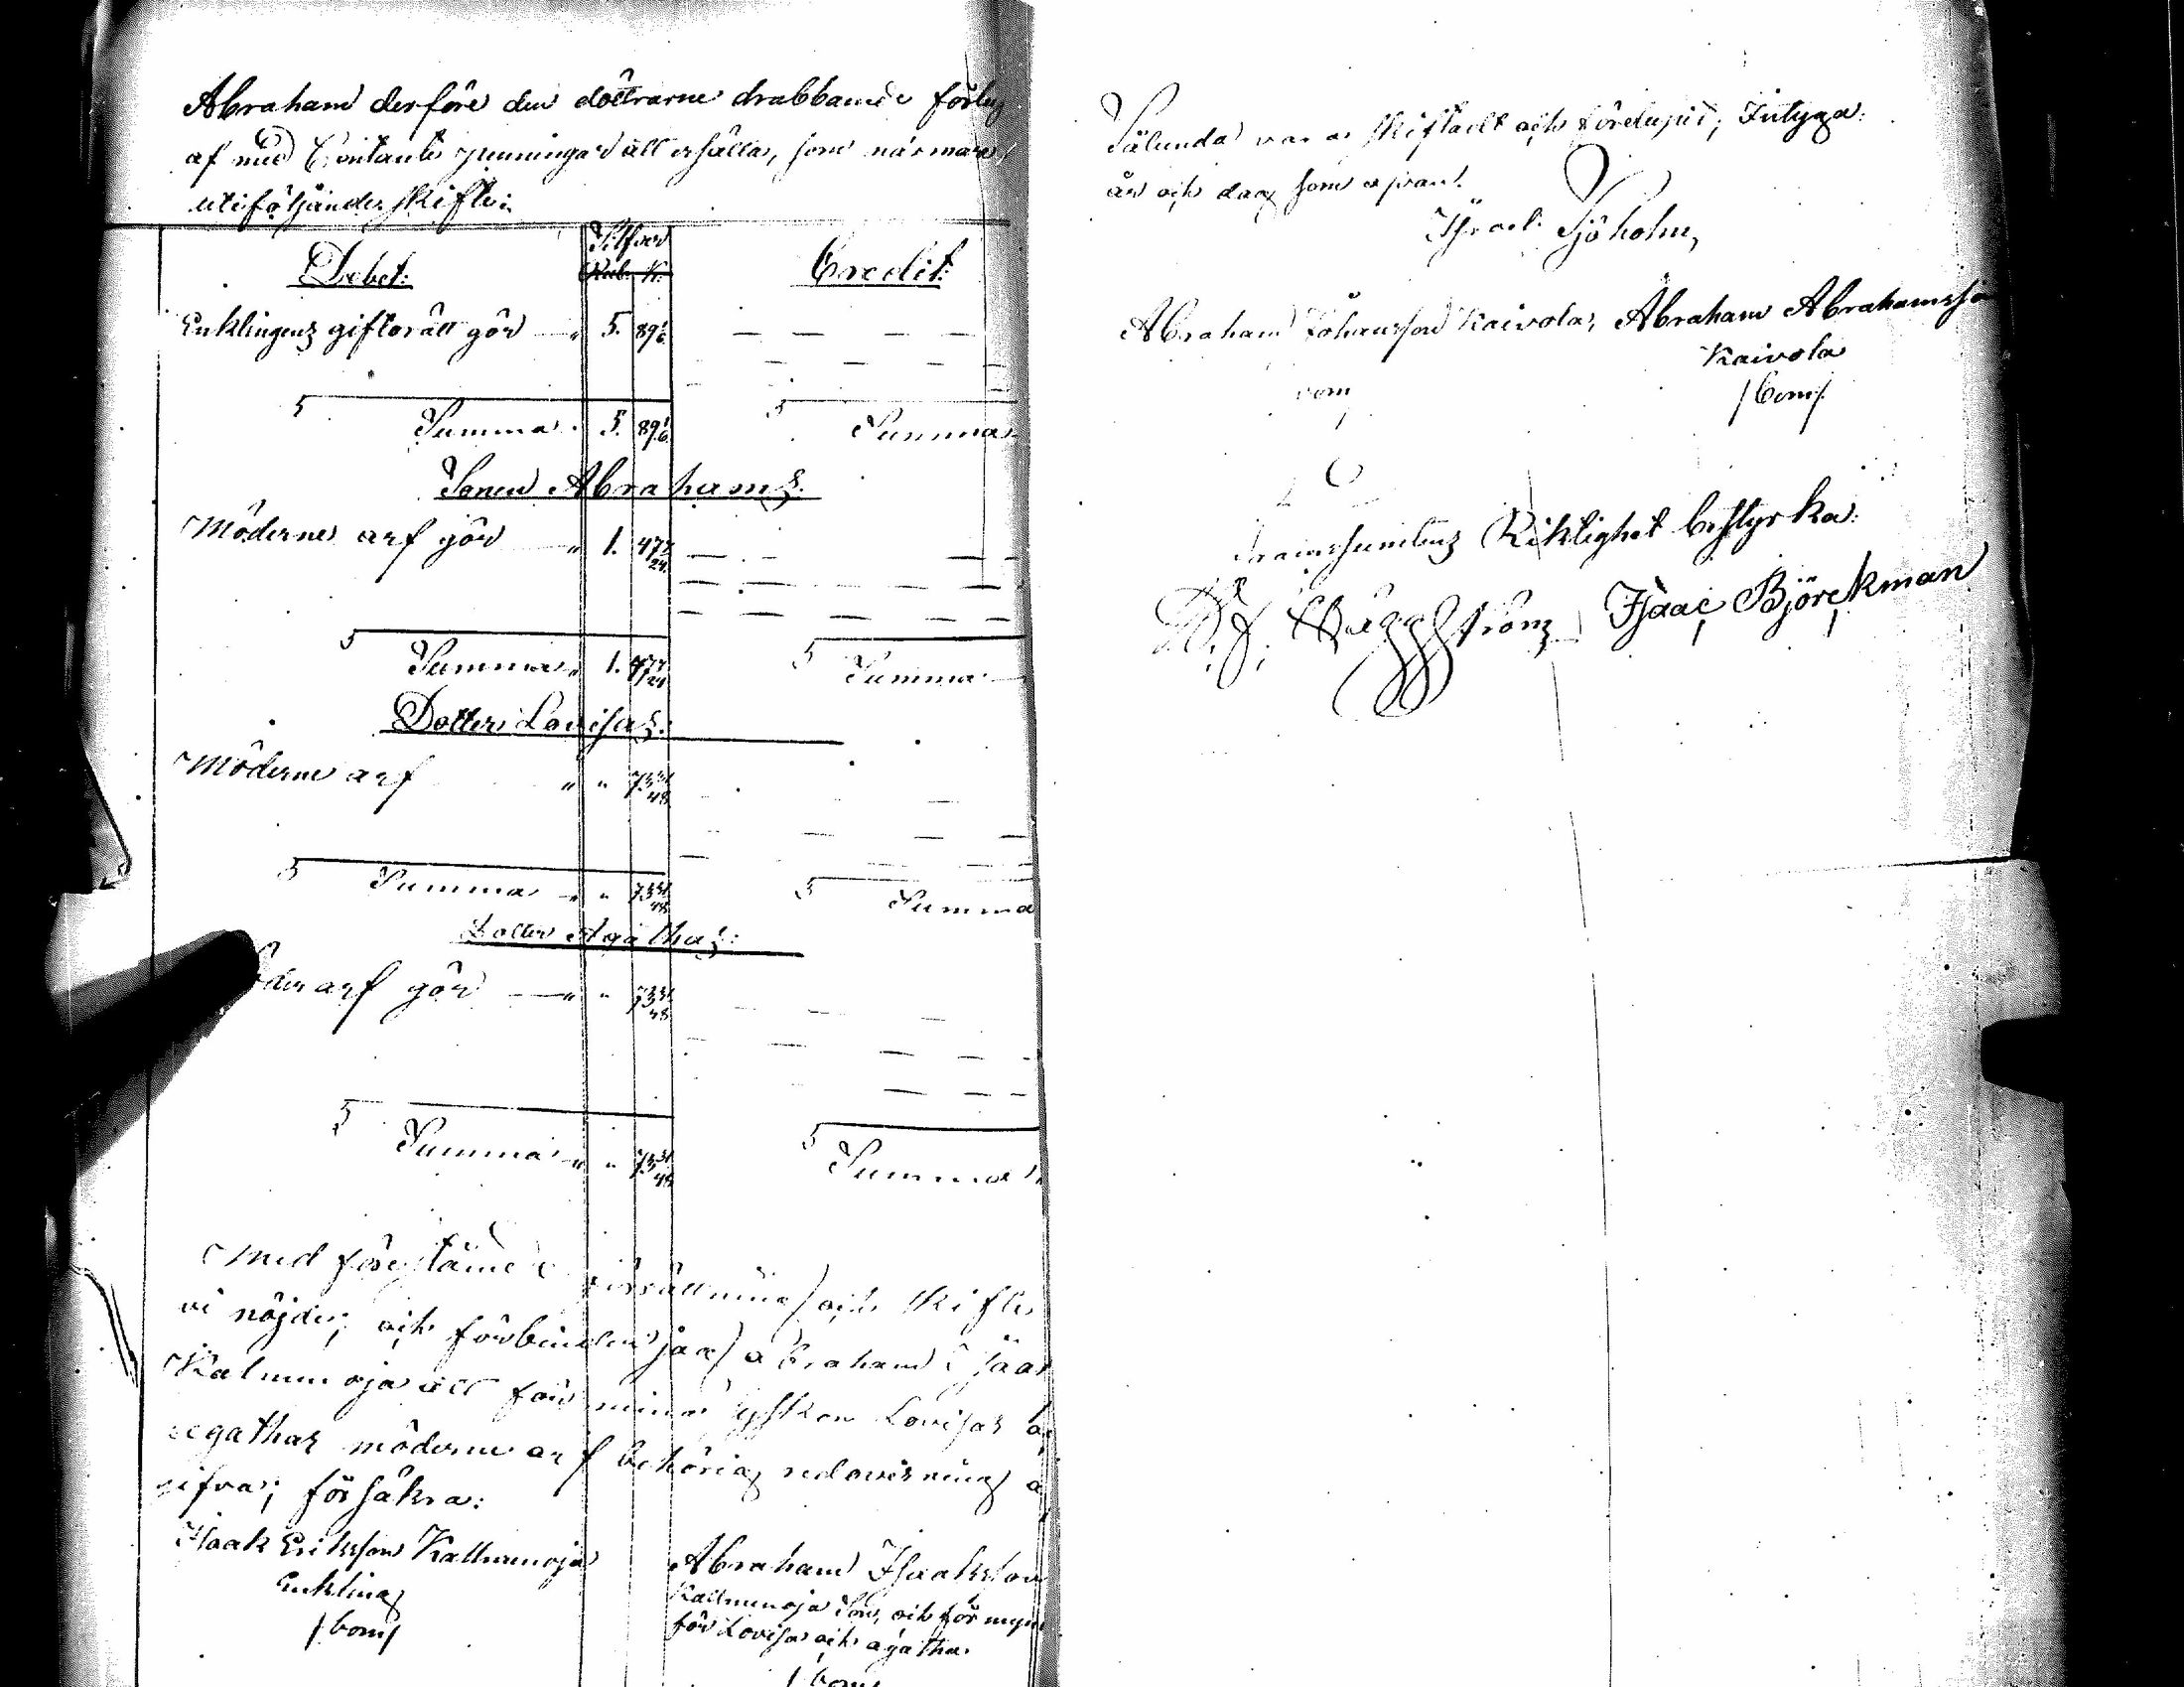 Abraham derföre den döttrarne drabbande
af med Contante penningar att erhålla, som närmare
uti följande skifte:
Debet: Silfver Credit:
Rub. K.
Enklingens giftorätt gör — " 5. 89 1/6
Summa 5. 89 1/6 Summa
Sonen Abrahams:
Möderne arf gör — " 1. 47 7/24
Summa " 1. 47 7/24 Summa
Dotter Lovisas:
Möderne arf " " 73 31/48
Summa " " 73 31/48 Summa
Dotter Agathas:
arf gör — " " 73 31/48
Summa " " 73 31/48 Summa
Med förestående förrättning och skifte
vi nöjde; och förbinder jag Abraham
Kallunoja att för mina syskon Lovisas
agathas möderne arf behörig redovisning
gifva; försäkra:
Isaak Eriksson
Enkling
/bom/
Abraham Isaaksson
Son, och för
för Lovisa och agatha
/bom/
Sålunda vara skiftadt och förelupit; Intyga:
år och dag som ofvan.
Israel Sjöholm,
Abraham Johansson Kaivola, Abraham Abrahamsson
Kaivola
bom /bom/
Riktighet bestyrka:
Häggström Isaac Björckman